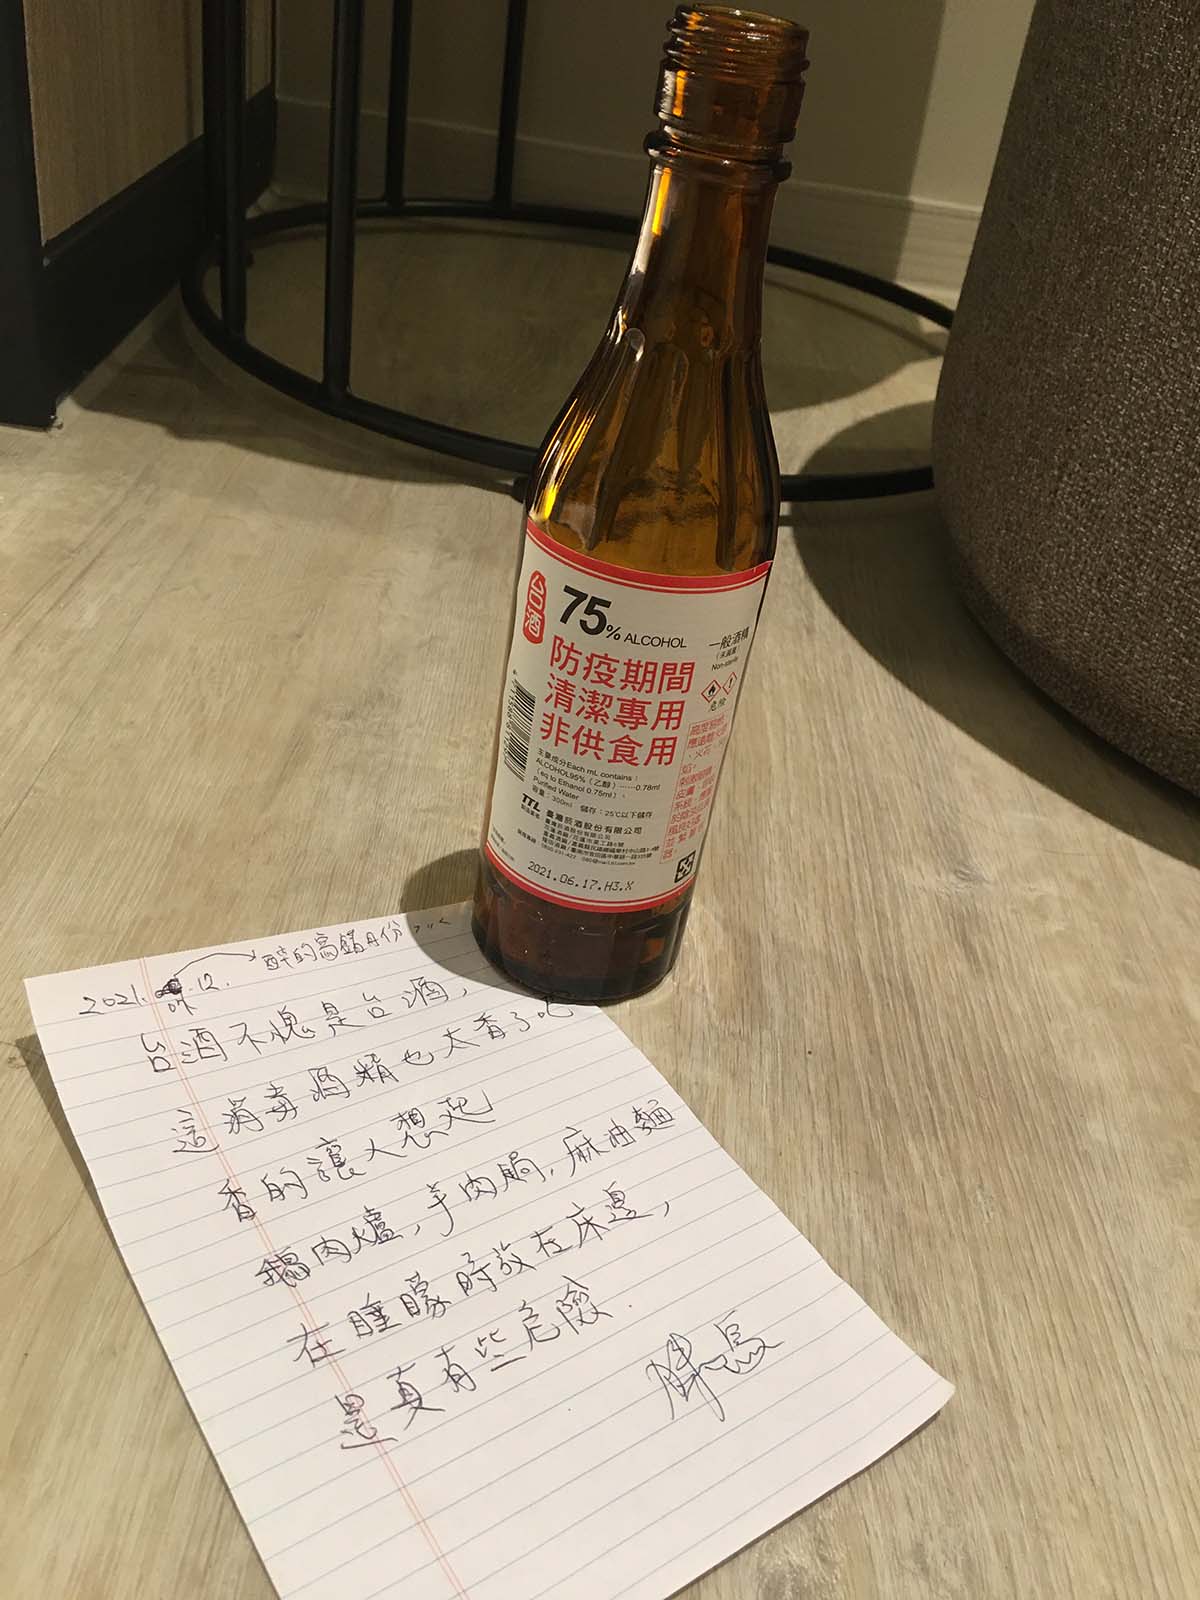 台酒
75% ALCOHOL
一般酒精
(未滅菌)
Non-sterile
防疫期間
清潔專用
非供食用
危險
主要成分Each mL contains:
ALCOHOL95%(乙醇)······0.78ml
(eq to Ethanol 0.75ml)、
Purified Water
容量:300ml 儲存:25℃以下儲存
TTL 臺灣菸酒股份有限公司
2021.06.17.H3.X
醉的寫錯月份
2021. 07.12.
台酒不愧是台酒,
這消毒酒精也太香了吧
香的讓人想起
鵝肉爐,羊肉鍋,麻油麵
在睡矇時放在床邊,
還真有些危險.
胖鳥